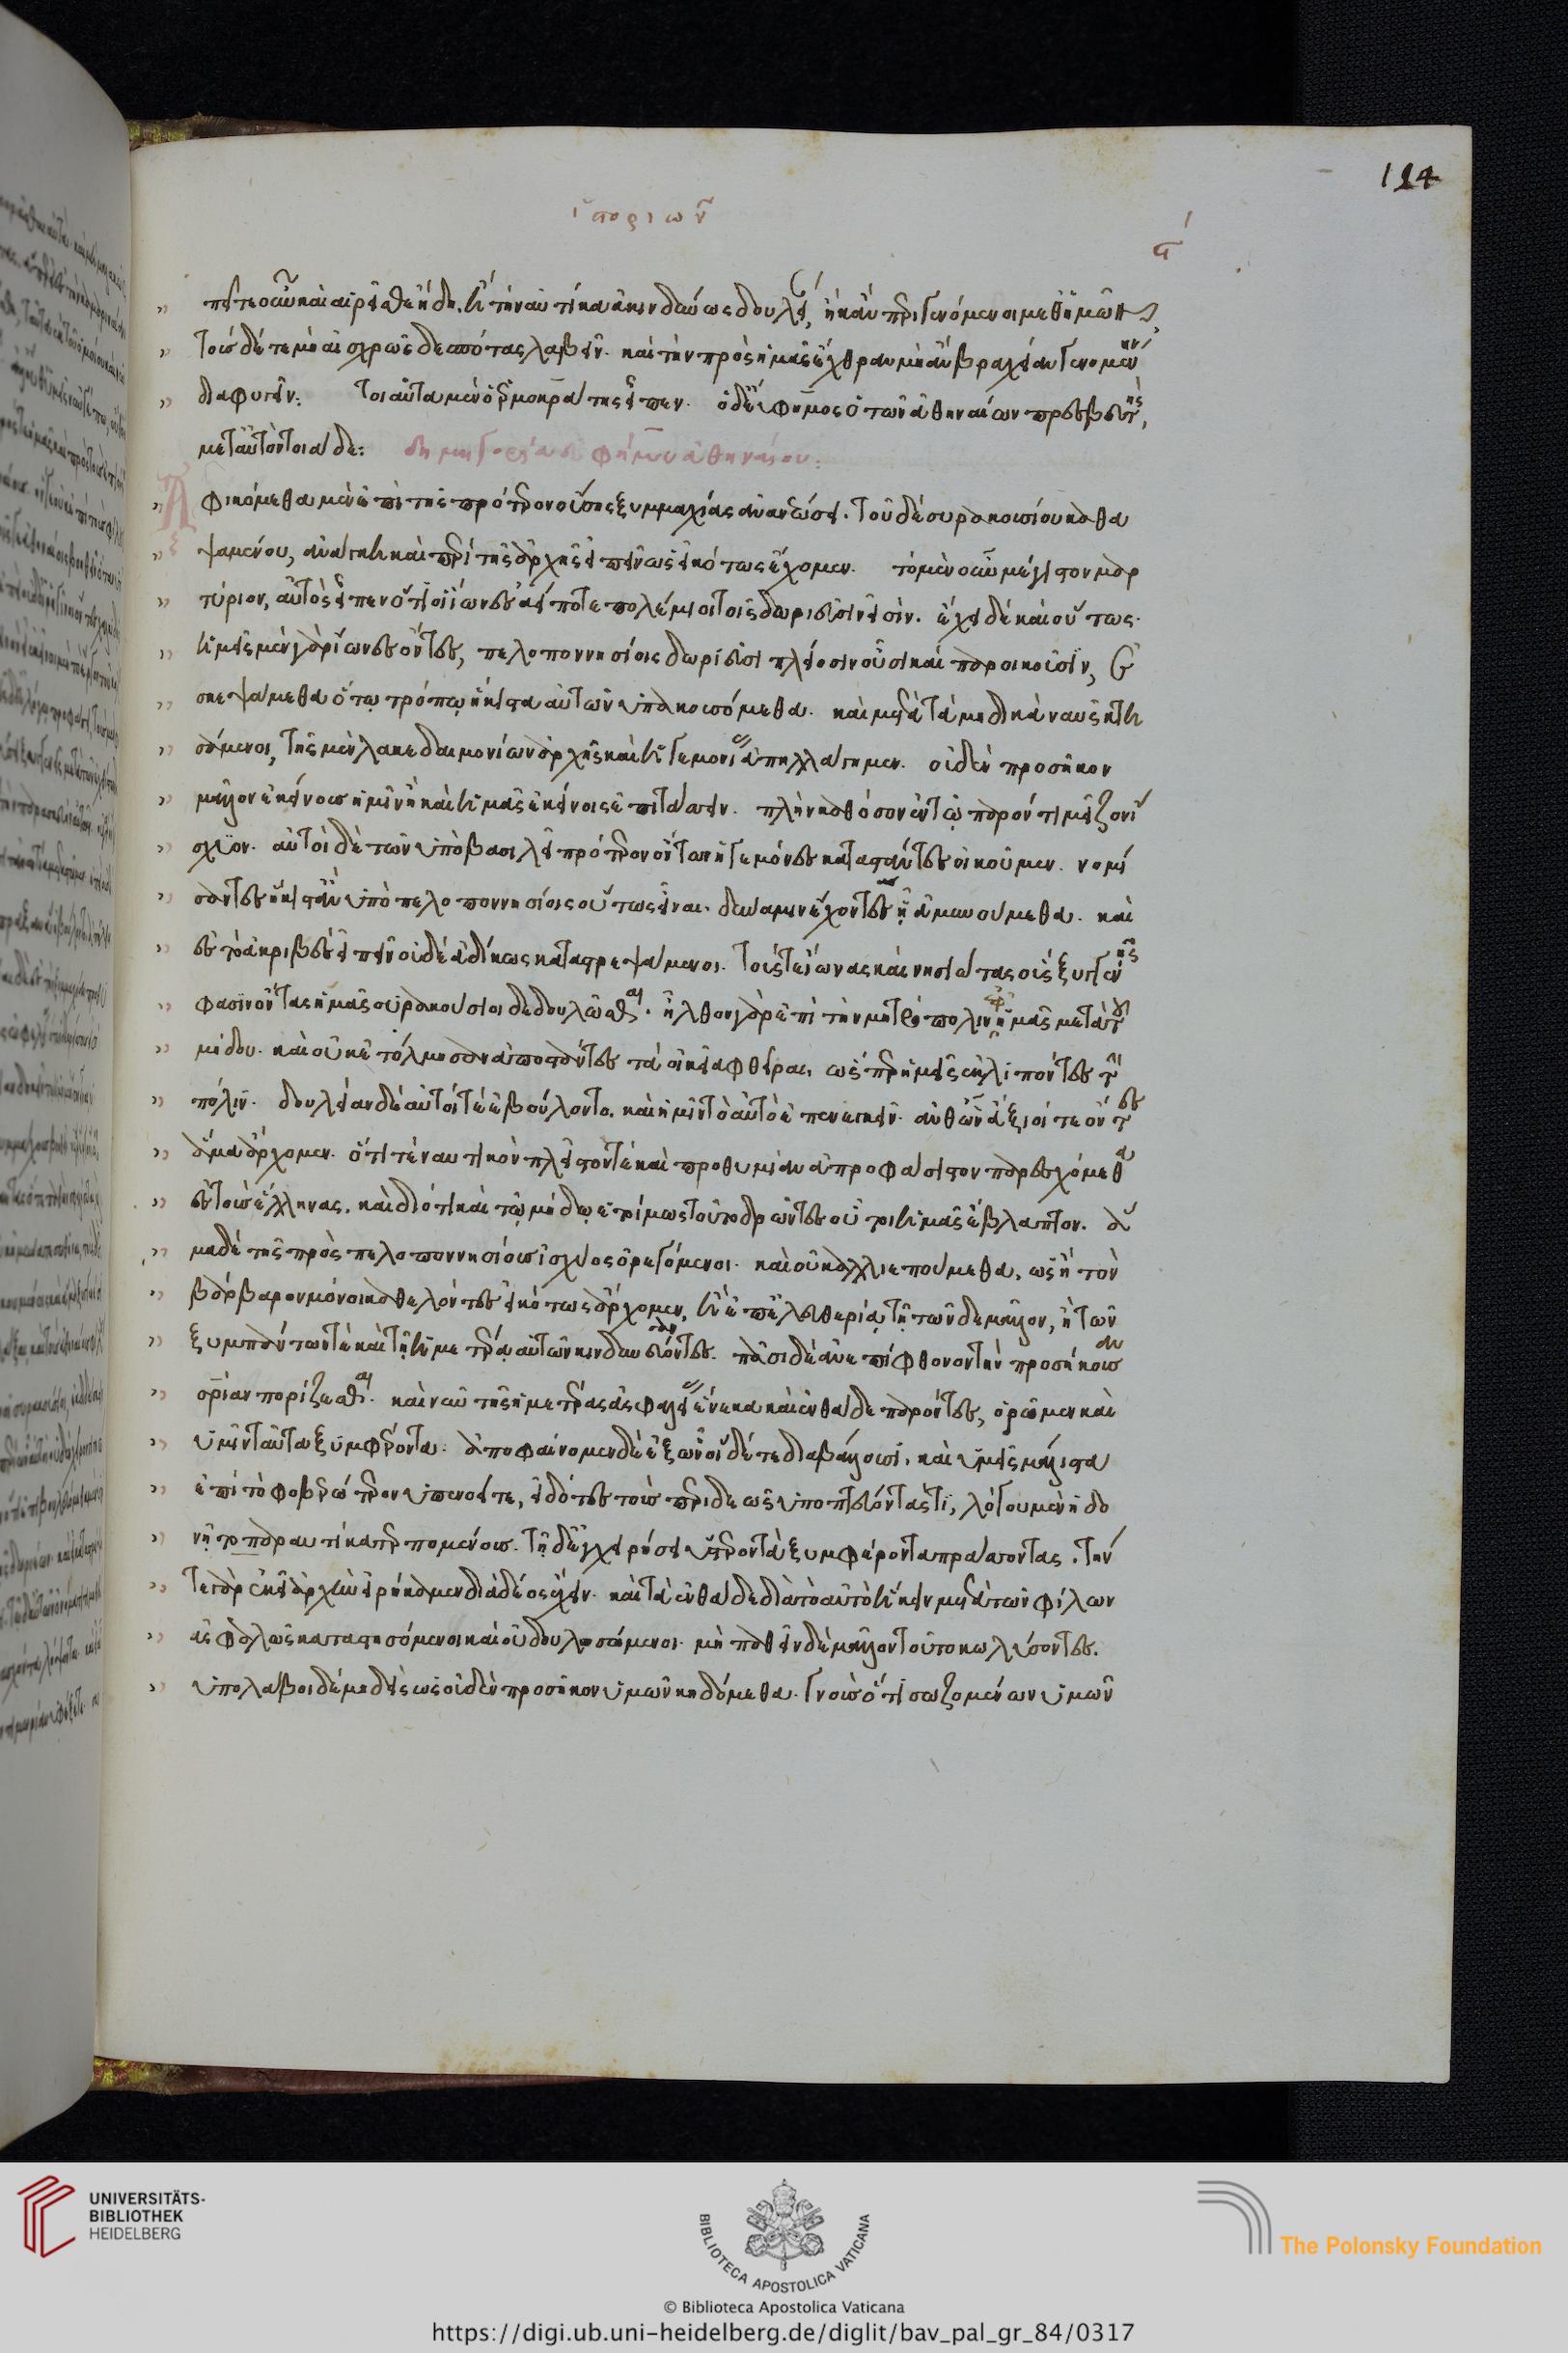 ἱστοριῶν
ϛ´
πεῖτε οὖν καὶ αἱρεῖσθε ἤδη. ἢ τὴν αὐτίκα ἀκινδύνως δουλεί, ἢ κἂν περιγενόμενοι μεθ' ἡμῶν
τούσδέ τε μὴ αἰσχρῶς δεσπότας λαβεῖν. καὶ τὴν πρὸς ἡμᾶς ἔχθραν μὴ ἂν βραχεῖαν γενομένην
διαφυγεῖν: τοιαῦτα μὲν ὁ ἑρμοκράτης εἶπεν. ὁ δὲ εὔφημος ὁ τῶν ἀθηναίων πρεσβευτής,
μετ' αὐτὸν τοιάδε: δημηγορία εὐφήμου ἀθηναίου:
Ἀφικόμεθα μὲν ἐπὶ τῆς πρότερον οὔσης ξυμμαχίας ἀνανεώσει. τοῦ δὲ συρακοσίου καθα
ψαμένου, ἀνάγκη καὶ περὶ τῆς ἀρχῆς εἰπεῖν ὡς εἰκότως ἔχομεν. τὸ μὲν οὖν μέγιστον μαρ
τύριον, αὐτὸς εἶπεν ὅτι οἱ ἴωνες αἰεί ποτε πολέμιοι τοῖς δωριεῦσιν εἰσίν. ἔχει δὲ καὶ οὕτως.
ἡμεῖς μὲν γὰρ ἴωνες ὄντες, πελοποννησίοις δωριεῦσι πλείοσιν οὖσι καὶ παροικοῦσιν, ἐ
σκεψάμεθα ὅτῳ τρόπῳ ἥκιστα αὐτῶν ὑπακουσόμεθα. καὶ μετὰ τὰ μηδικὰ ναῦς κτη
σάμενοι, τῆς μὲν λακεδαιμονίων ἀρχῆς καὶ ἡγεμονίας ἀπηλλάγημεν. οὐδὲν προσῆκον
μᾶλλον ἐκείνους ἡμῖν ἢ καὶ ἡμᾶς ἐκείνοις ἐπιτάσσειν. πλὴν καθόσον ἐν τῷ παρόντι μεῖζον ἴ
σχυον. αὐτοὶ δὲ τῶν ὑπὸ βασιλεῖ πρότερον ὄντων ἡγεμόνες καταστάντες οἰκοῦμεν. νομί
σαντες ἥκιστ' ἂν ὑπὸ πελοποννησίοις οὕτως εἶναι. δύναμιν ἔχοντες ᾗ ἀμυνούμεθα. καὶ
ἐς τὸ ἀκριβὲς εἰπεῖν οὐδὲ ἀδίκως καταστρεψάμενοι. τούς τε ἴωνας καὶ νησιώτας οὓς ξυγγενεῖς
φασὶν ὄντας ἡμᾶς συρακούσιοι δεδουλῶσθαι. ἦλθον γὰρ ἐπὶ τὴν μητρόπολιν ἐφ' ἡμᾶς μετὰ τοῦ
μήδου. καὶ οὐκ ἐτόλμησαν ἀποστάντες τὰ οἰκεῖα φθεῖραι, ὥσπερ ἡμεῖς ἐκλιπόντες τὴν
πόλιν. δουλείαν δὲ αὐτοί τε ἐβούλοντο, καὶ ἡμῖν τὸ αὐτὸ ἐπενεγκεῖν. ἀνθ' ὧν ἄξιοί τε ὄντες
ἅμα ἄρχομεν. ὅτι τε ναυτικὸν πλεῖστόν τε καὶ προθυμίαν ἀπροφάσιστον παρεσχόμεθα
ἐς τοὺς ἕλληνας. καὶ διότι καὶ τῷ μήδῳ ἑτοίμως τοῦτο δρῶντες οὗτοι ἡμᾶς ἔβλαπτον. ἅ
μα δὲ τῆς πρὸς πελοποννησίους ἰσχύος ὀρεγόμενοι. καὶ οὐ καλλιεπούμεθα, ὡς ἢ τὸν
βάρβαρον μόνοι καθελόντες εἰκότως ἄρχομεν, ἢ ἐπ' ἐλευθερίᾳ τῇ τῶνδε μᾶλλον, ἢ τῶν
ξυμπάντων τε καὶ τῇ ἡμετέρᾳ αὐτῶν κινδυνεύσαντες. πᾶσι δὲ ἀνεπίφθονον τὴν προσήκουσαν
σωτηρίαν πορίζεσθαι. καὶ νῦν τῆς ἡμετέρας ἀσφαλείας ἕνεκα καὶ ἐνθάδε παρόντες, ὁρῶμεν καὶ
ὑμῖν ταῦτα ξυμφέροντα. ἀποφαίνομεν δὲ ἐξ ὧν οἵδέ τε διαβάλλουσι, καὶ ὑμεῖς μάλιστα
ἐπὶ τὸ φοβερώτερον ὑπονοεῖτε, εἰδότες τοὺς περιδεῶς ὑποπτεύοντάς τι, λόγου μὲν ἡδο
νῇ τὸ παραυτίκα τερπομένους. τῇ δ' ἐγχειρήσει ὕστερον τὰ ξυμφέροντα πράσσοντας. τήν
τε γὰρ ἐκεῖ ἀρχὴν εἰρήκαμεν διὰ δέος ἔχειν. καὶ τὰ ἐνθάδε διὰ τὸ αὐτὸ ἥκειν μετὰ τῶν φίλων
ἀσφαλῶς καταστησόμενοι καὶ οὐ δουλωσόμενοι. μὴ παθεῖν δὲ μᾶλλον τοῦτο κωλύσοντες.
ὑπολάβοι δὲ μηδεὶς ὡς οὐδὲν προσῆκον ὑμῶν κηδόμεθα. γνοὺς ὅτι σωζομένων ὑμῶν
UNIVERSITÄTS-
BIBLIOTHEK
HEIDELBERG
BIBLIOTECA APOSTOLICA VATICANA
The Polonsky Foundation
© Biblioteca Apostolica Vaticana
https://digi.ub.uni-heidelberg.de/diglit/bav_pal_gr_84/0317